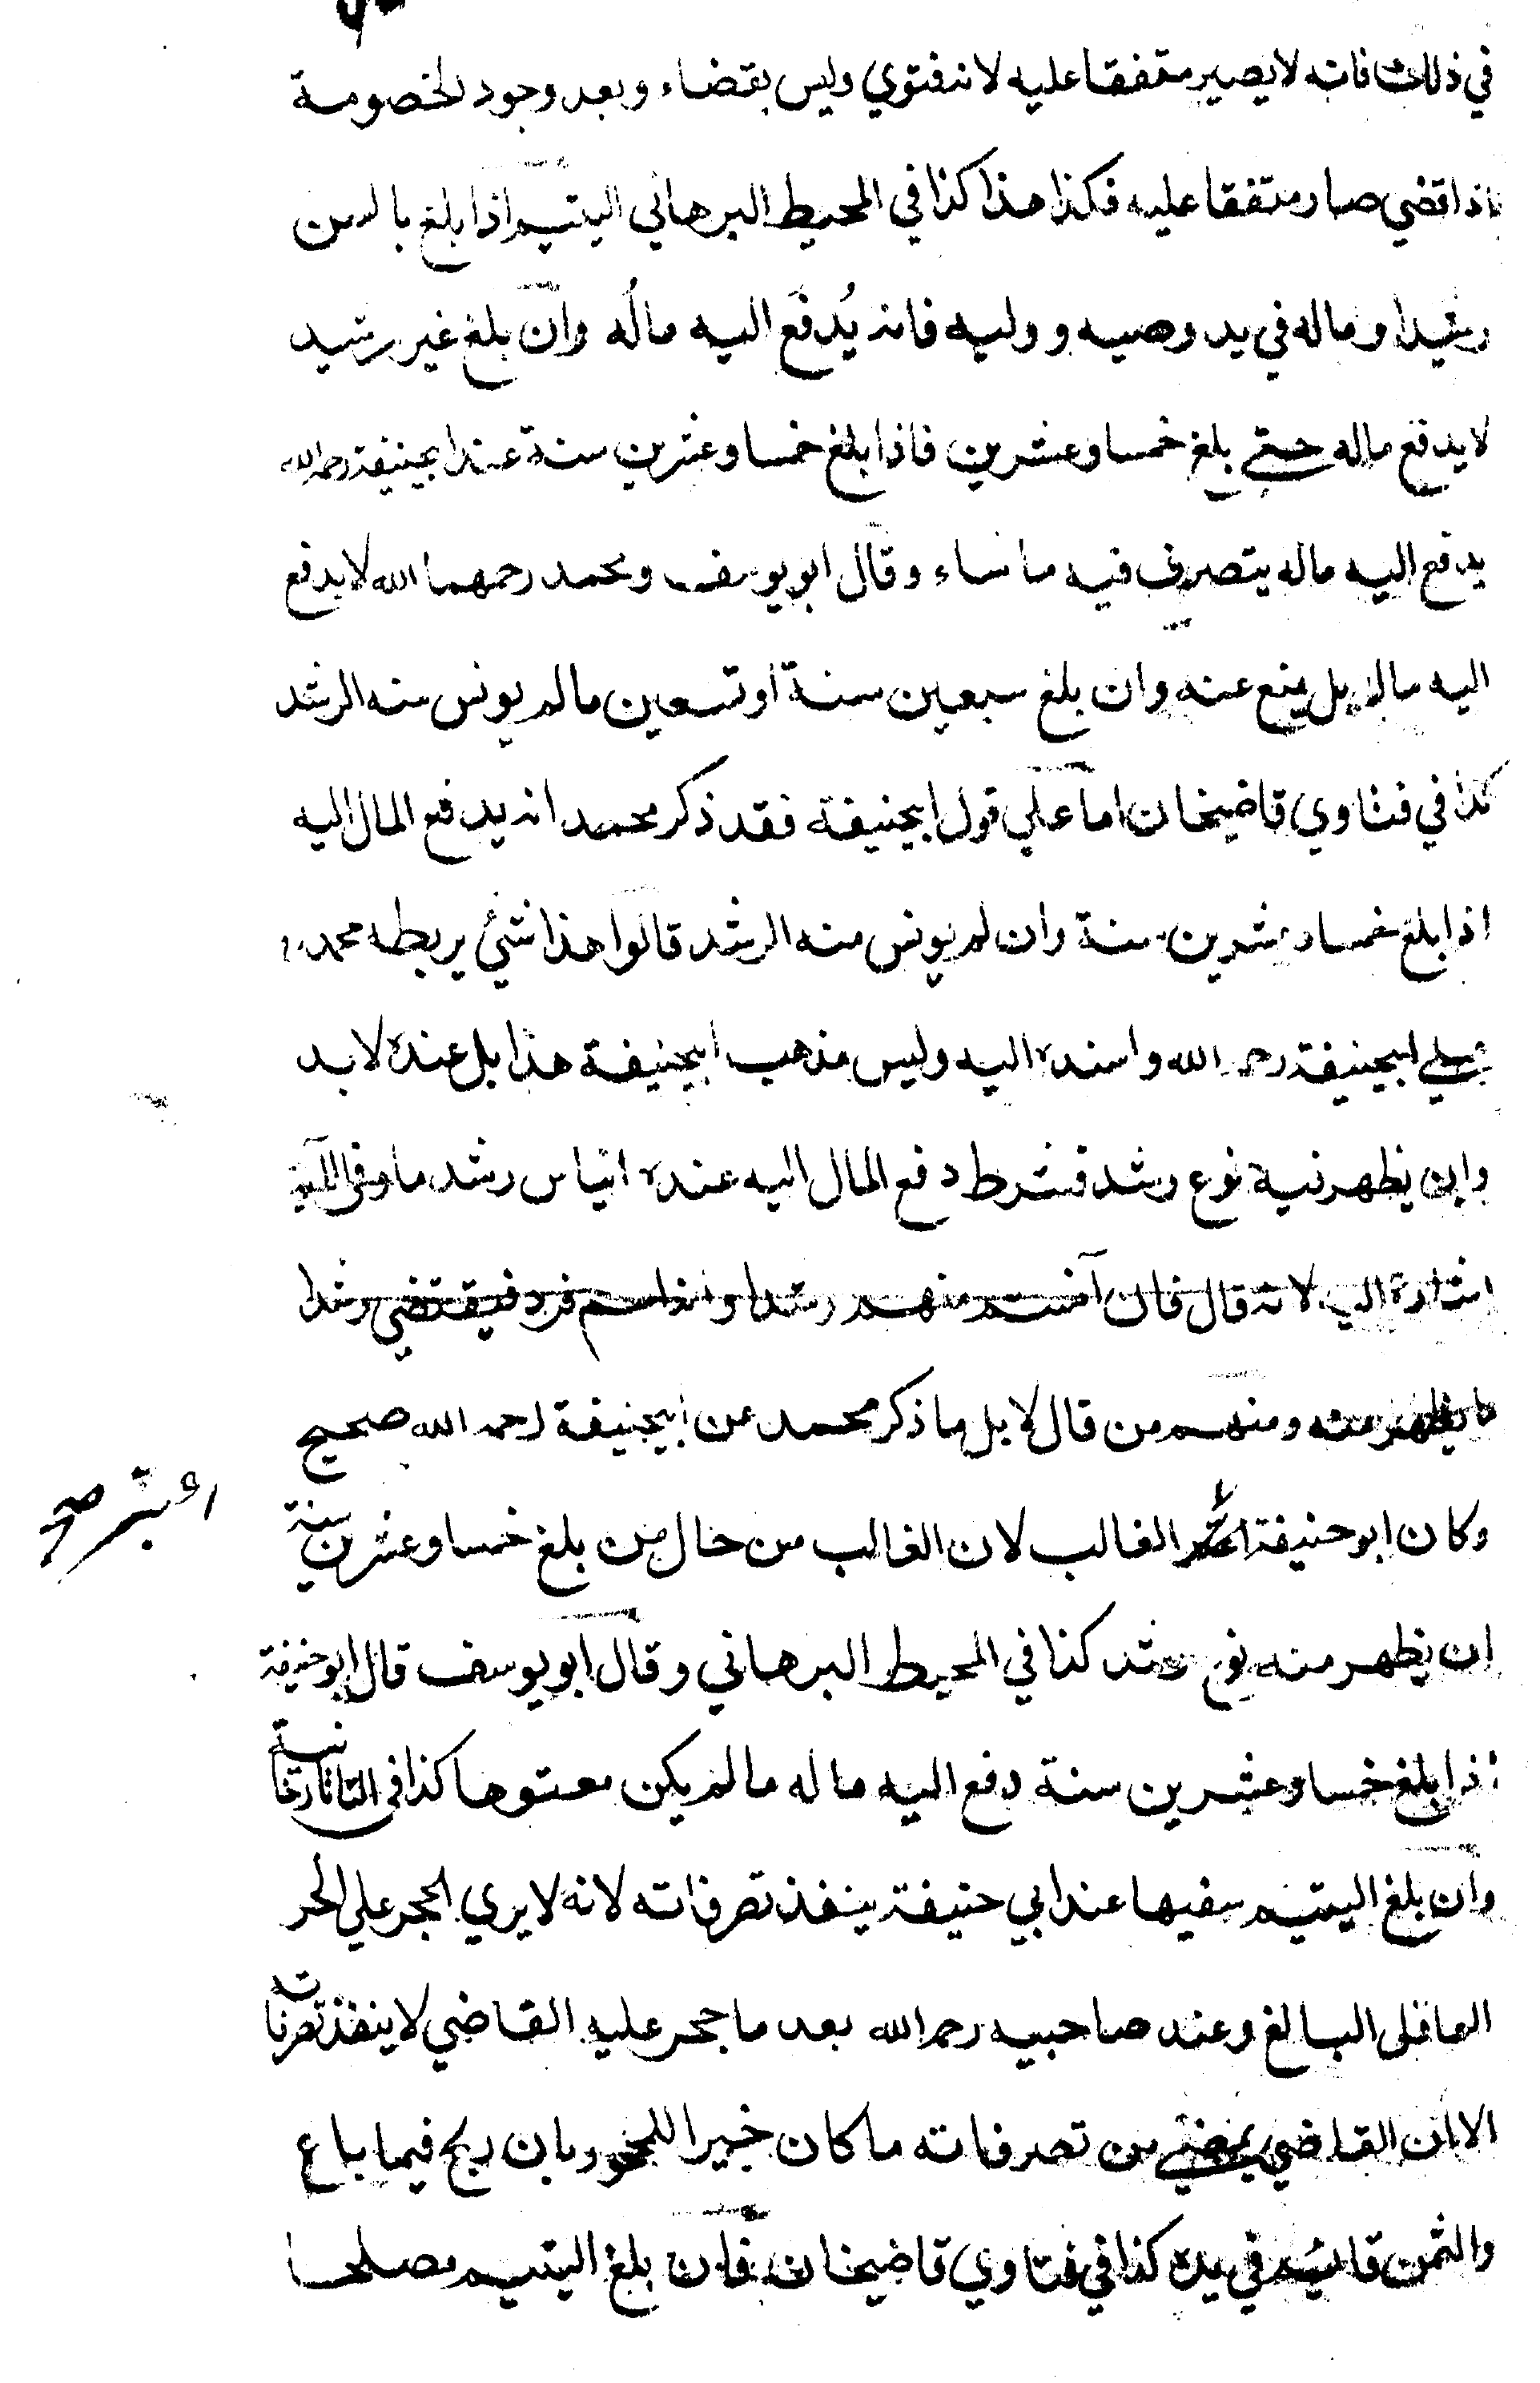 في ذلك فانه لا يصير متفقا عليه لانه فتوي وليس بقضاء وبعد وجود الخصومة
اذا قضي صار متفقا عليه فكذا هذا كذا في المحيط البرهاني اليتيم اذا بلغ بالسن
رشيدا وماله في يد وصيه ووليه فانه يُدفع اليه مالُه وان بلغ غير رشيد
لا يدفع ماله حتي بلغ خمسا وعشرين فاذا بلغ خمسا وعشرين سنة عند ابيحنيفة رحمه الله
يدفع اليه ماله يتصرف فيه ما شاء وقال ابو يوسف ومحمد رحمهما الله لا يدفع
اليه ماله بل يمنع عنه وان بلغ سبعين سنة او تسعين ما لم يونس منه الرشد
كذا في فتاوي قاضيخان اما علي قول ابيحنيفة فقد ذكر محمد انه يدفع المال اليه
اذا بلغ خمسا وعشرين سنة وان لم يونس منه الرشد قالوا هذا شئ يربطه محمد
علي ابيحنيفة رحمه الله واسنده اليه وليس مذهب ابيحنيفة هذا بل عنده لا بد
وان يظهر فيه نوع رشد فشرط دفع المال اليه عنده ايناس رشد ما وفي الآية
اشارة اليه لانه قال فان آنستم منهم رشدا وانه اسم فرد فيقتضي رشدا
ما يظهر منه ومنهم من قال لا بل ما ذكر محمد عن ابيحنيفة رحمه الله صحيح
وكان ابو حنيفة الغالب لان الغالب من حال من بلغ خمسا وعشرين سنة
اعتبر صح
ان يظهر منه نوع رشد كذا في المحيط البرهاني وقال ابو يوسف قال ابو حنيفة
اذا بلغ خمسا وعشرين سنة دفع اليه ماله ما لم يكن معتوها كذا في التاتارخانية
وان بلغ اليتيم سفيها عند ابي حنيفة ينفذ تصرفاته لانه لا يري الحجر علي الحر
العاقل البالغ وعند صاحبيه رحمه الله بعد ما حجر عليه القاضي لا ينفذ تصرفاته
الا ان القاضي يمضي من تصرفاته ما كان خيرا للمحجور بان ربح فيما باع
والثمن قائم في يده كذا في فتاوي قاضيخان فان بلغ اليتيم مصلحا